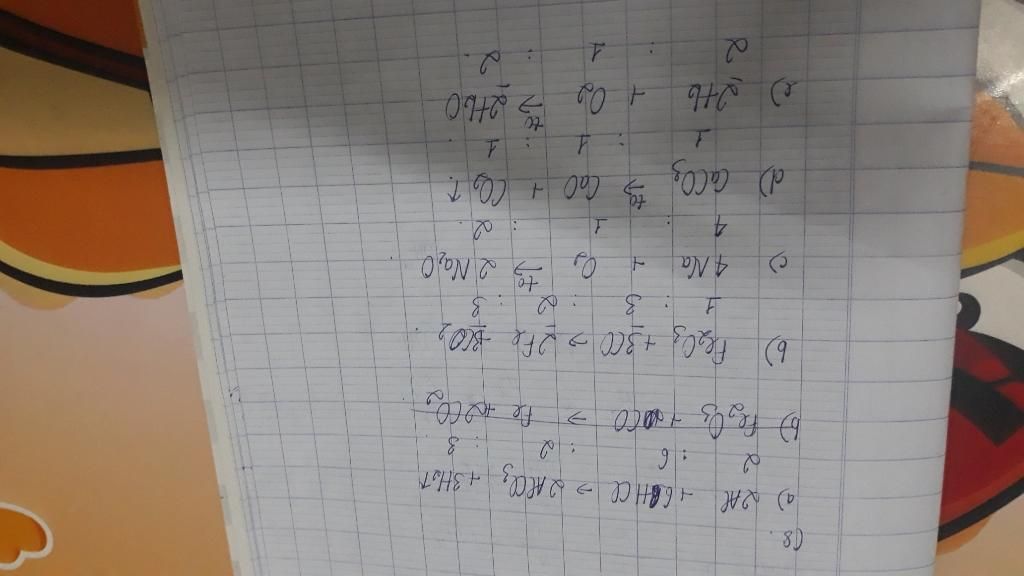 C8.
a) 2Al + 6HCl → 2AlCl3 + 3H2↑
2 : 6 : 2 : 3
b) Fe2O3 + 2CO → Fe + 2CO2
b) Fe2O3 + 3CO → 2Fe + 3CO2
1 : 3 : 2 : 3
c) 4Na + O2 →to 2Na2O
4 : 1 : 2
d) CaCO3 →to CaO + CO2↑
1 : 1 : 1
e) 2H2 + O2 →to 2H2O
2 : 1 : 2